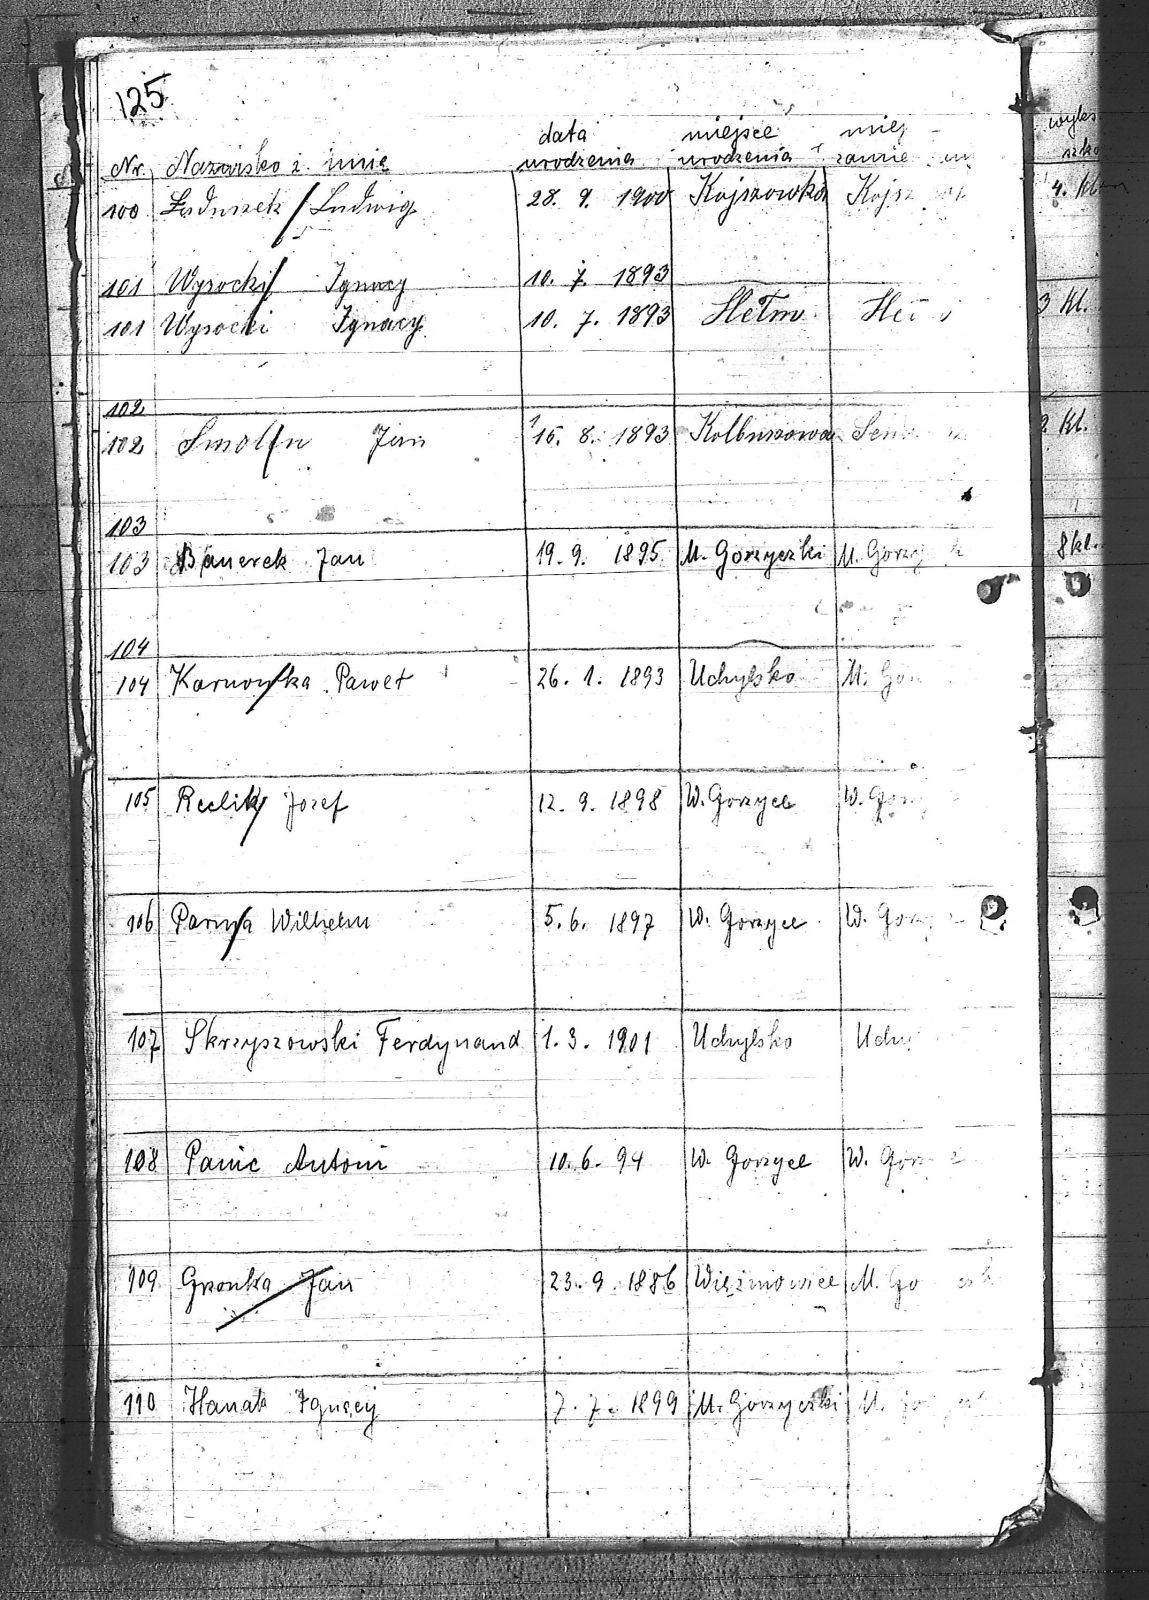 125
Nr. Nazwisko i imię data urodzenia miejsce urodzenia miej zamie wyks szko
100 Ludwig 28. 9. 1900 Kojszowka Kojsz 4. kl
101 Wysocki Ignacy 10. 7. 1893
101 Wysocki Ignacy 10. 7. 1893 3 kl.
102
102 Smolin Jan 15. 8. 1893 Kolbuszowa 2 kl.
103
103 Banerek Jan 19. 9. 1895 M. Gorzyczki M. Gorzy 8 kl.
104
104 Karnowka Paweł 26. 1. 1893 Uchylsko M. Gor
105 Reclik Jozef 12. 9. 1898 W. Gorzyce W. Gorzy
106 Parma Wilhelm 5. 6. 1897 W. Gorzyce W. Gorz
107 Skrzyszowski Ferdynand 1. 3. 1901 Uchylsko Uchy
108 Panic Antoni 10. 6. 94 W. Gorzyce W. Gorz
109 Gronka Jan 23. 9. 1886 M. Go
110 Hanak Ignacy 7. 7. 1899 M. Gorzyczki M. Go